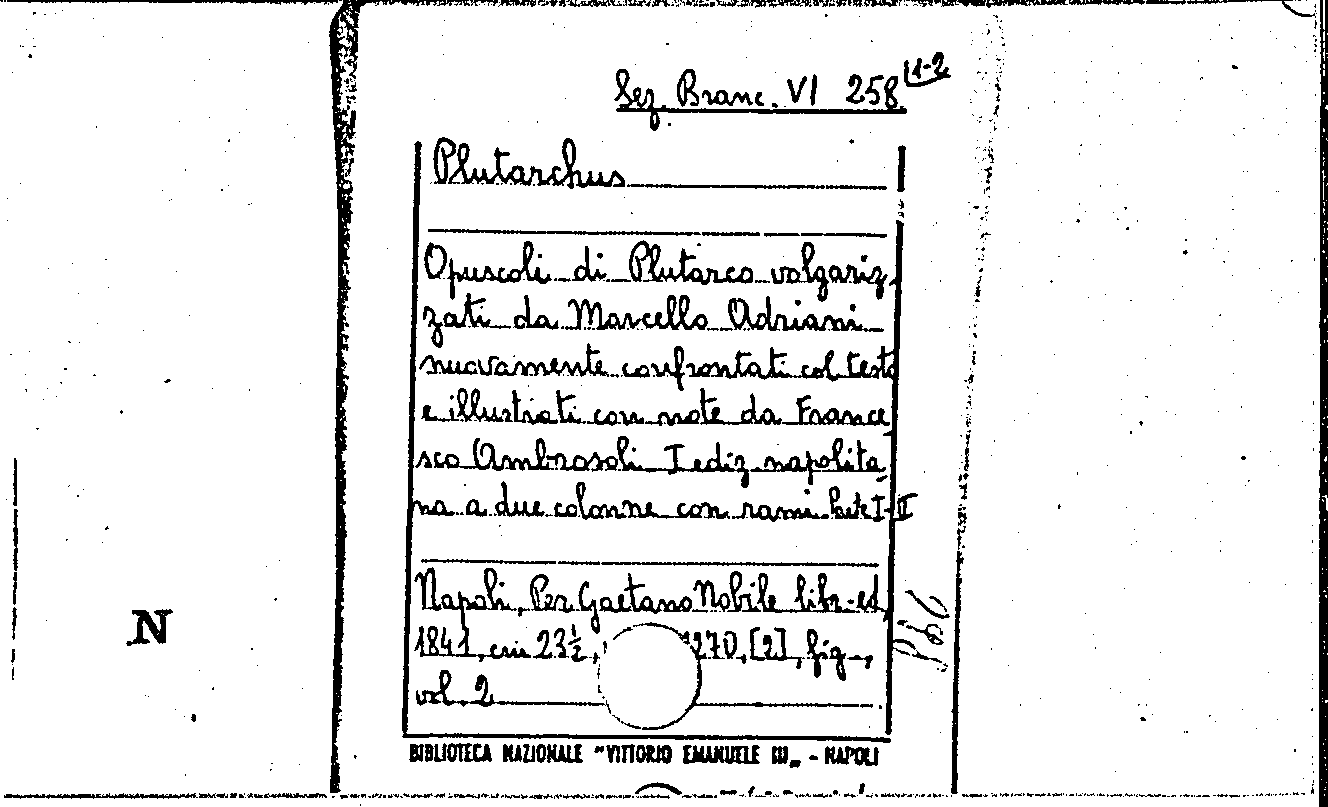 Sez. Branc. VI 258 (1-2
Plutarchus
Opuscoli di Plutarco volgariz-
zati da Marcello Adriani
nuovamente confrontati col testo
e illustrati con note da France-
sco Ambrosoli I ediz. napolita-
na a due colonne con rami. Parte I-II
Napoli, Per Gaetano Nobile libr-ed,
1841, cm 23½, 270, [2], fig.,
vol. 2
N
BIBLIOTECA NAZIONALE "VITTORIO EMANUELE III„ - NAPOLI